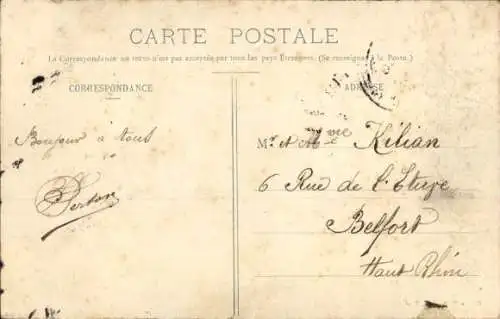 CARTE POSTALE
La Correspondance au recto n'est pas acceptée par tous les pays Étrangers. (Se renseigner à la Poste.)
CORRESPONDANCE
ADRESSE
Bonjour à tous
Mr et Mme Kilian
6 Rue de l'Etuve
Belfort
Haut Rhin